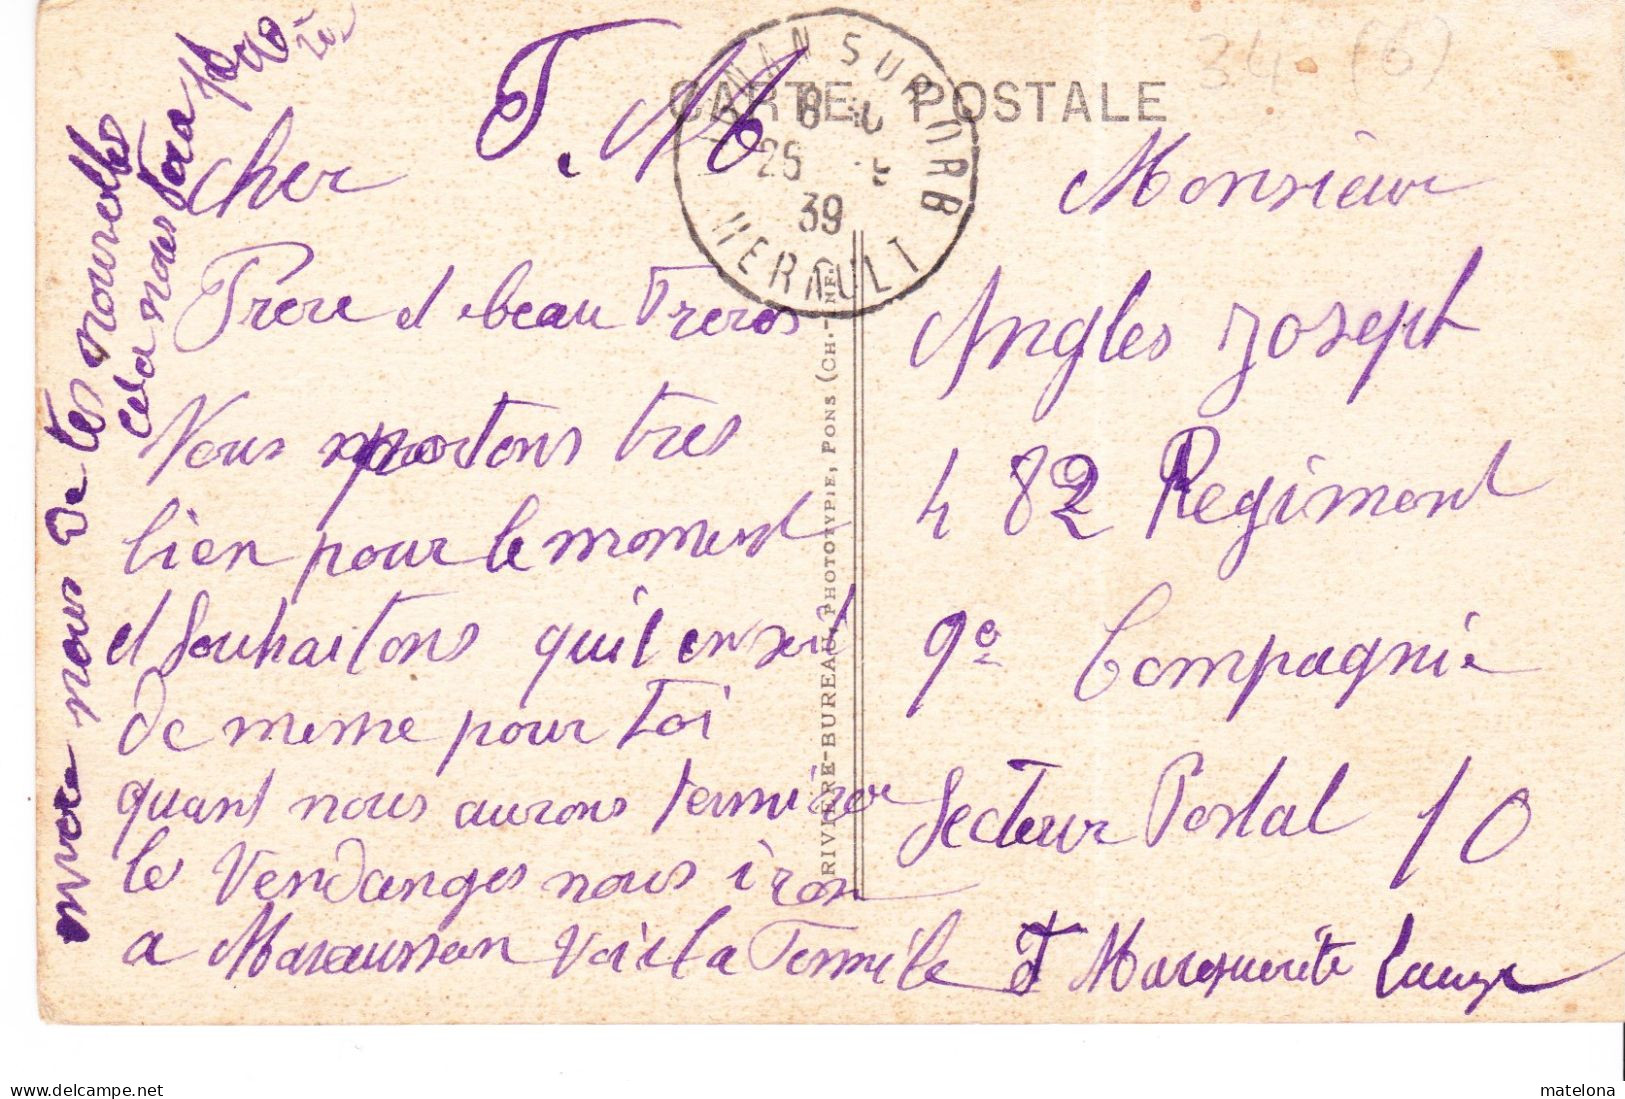 CARTE POSTALE
F.M
34 (6)
NAN SUR ORB
8
25
39
HERAULT
cher
Frere et beau Freres
Nous portons tres
bien pour le moment
et souhaitons quil en soit
de meme pour toi
quant nous aurons terminer
le Vendanges nous iron
a Maraussan voir la Famile
envoie nous De tes nouvelles
cela nous fera
et Marguerite
Monsieur
Angles Joseph
482 Regiment
9e Compagnie
Secteur Postal 10
RIVIÈRE-BUREAU, PHOTOTYPIE, PONS (CH.-INF.)
delcampe.net
matelona